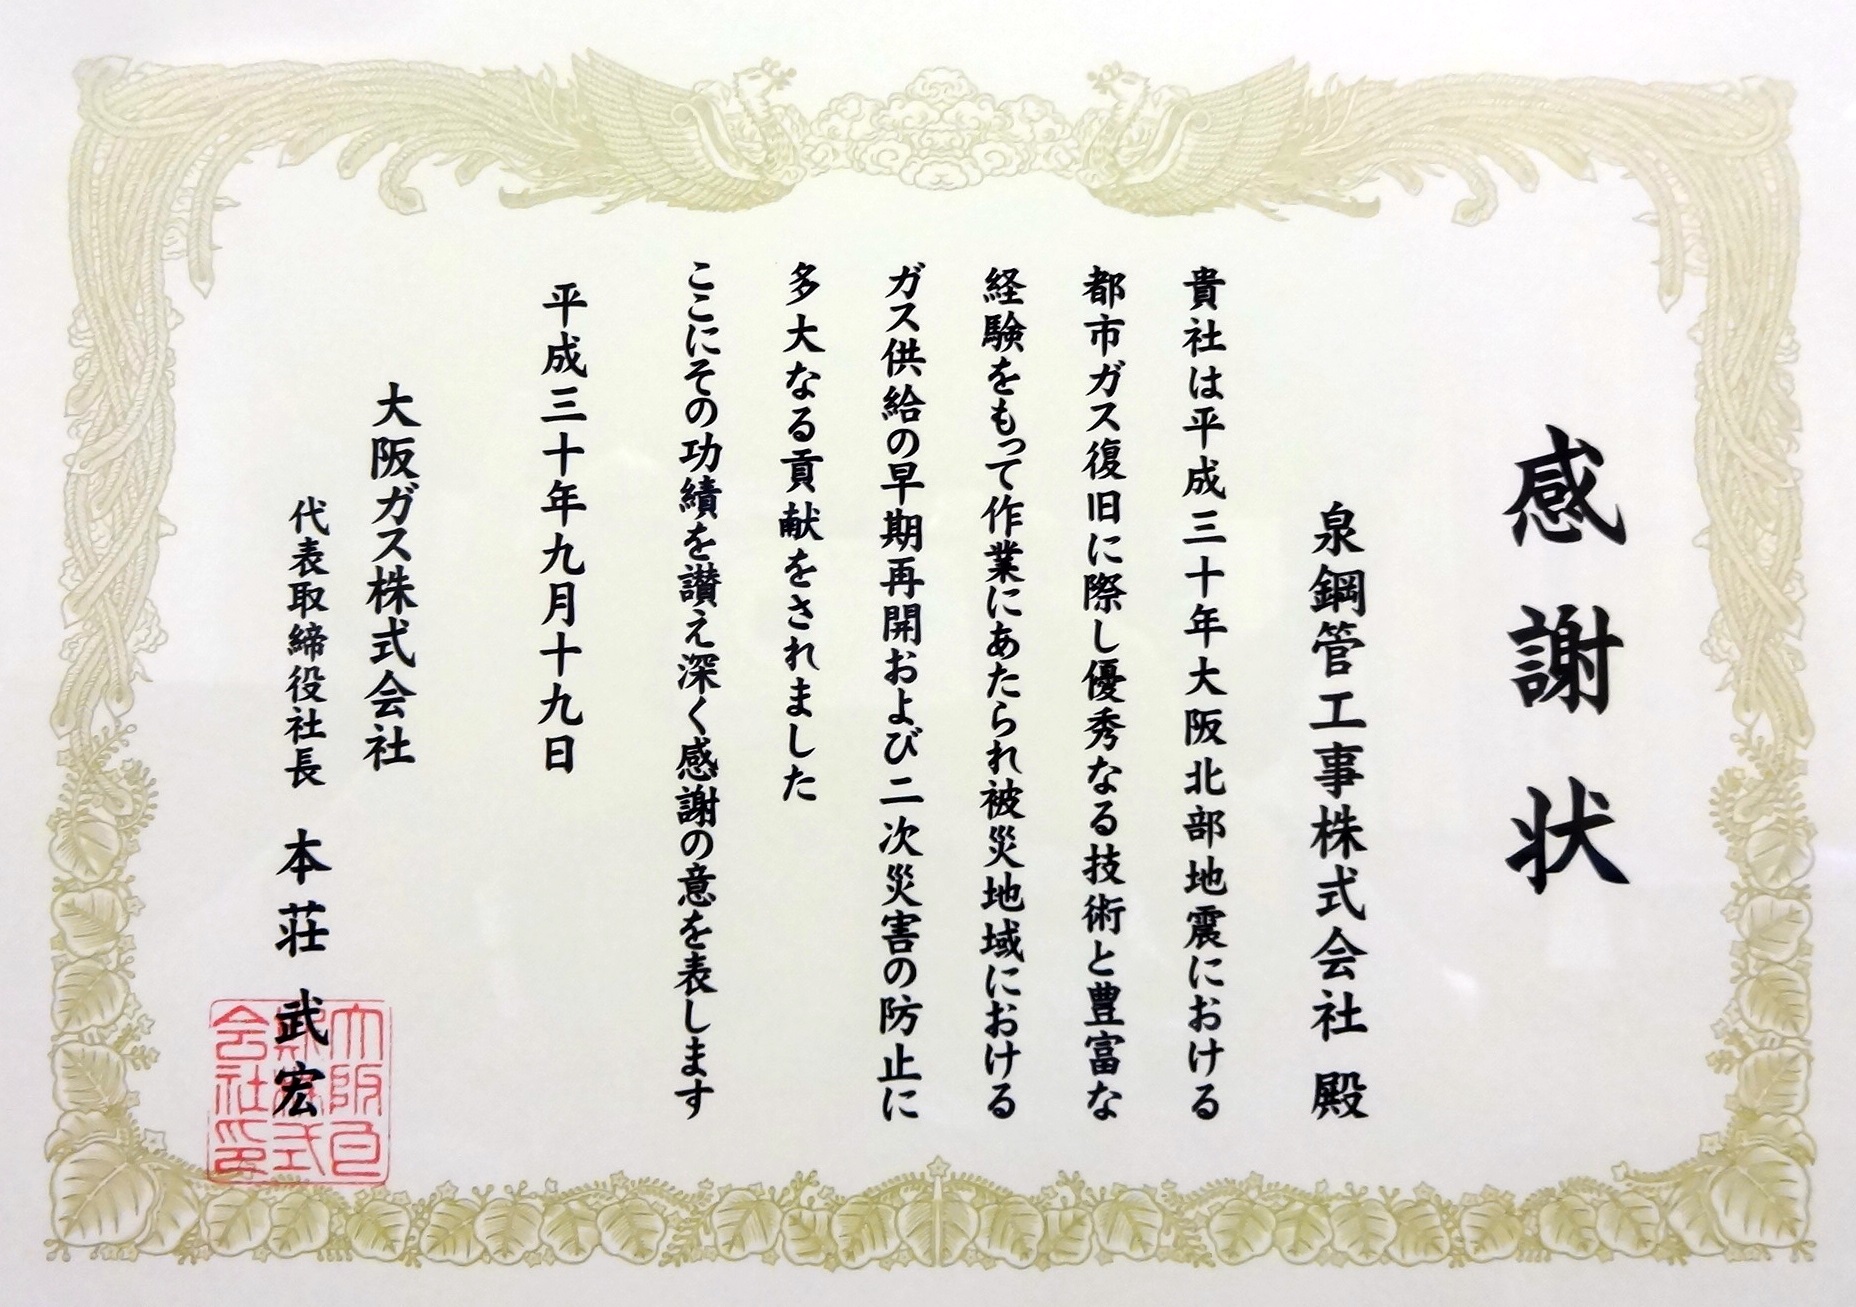 感謝状
泉鋼管工事株式会社 殿
貴社は平成三十年大阪北部地震における
都市ガス復旧に際し優秀なる技術と豊富な
経験をもって作業にあたられ被災地域における
ガス供給の早期再開および二次災害の防止に
多大なる貢献をされました
ここにその功績を讃え深く感謝の意を表します
平成三十年九月十九日
大阪ガス株式会社
代表取締役社長 本荘 武宏